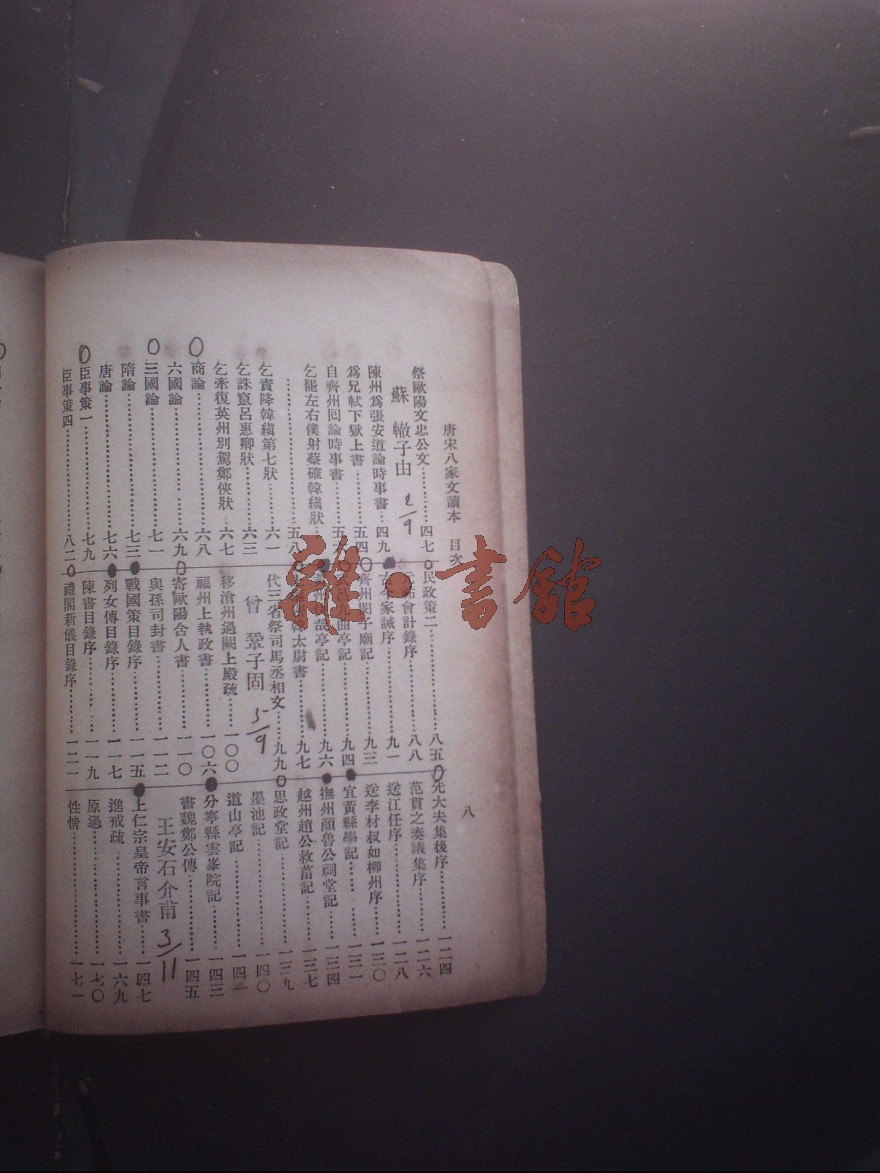 唐宋八家文讀本 目次
八
祭歐陽文忠公文 四七
蘇轍子由 2/9
陳州爲張安道論時事書 四九
爲兄軾下獄上書 五四
自齊州回論時事書 五六
乞罷左右僕射蔡確韓縝狀
五八
乞責降韓縝第七狀 六一
乞誅竄呂惠卿狀 六三
乞牽復英州別駕鄭俠狀 六七
商論 六八
六國論 六九
三國論 七一
隋論 七三
唐論 七六
臣事策一 七九
臣事策四 八二
民政策二 八五
會計錄序 八八
古今家誡序 九一
齊州閔子廟記 九三
九曲亭記 九四
哉亭記 九六
韓太尉書 九七
代三省祭司馬丞相文 九九
曾鞏子固 5/9
移滄州過闕上殿疏 一〇〇
福州上執政書 一〇六
寄歐陽舍人書 一一〇
與孫司封書 一一二
戰國策目錄序 一一五
列女傳目錄序 一一七
陳書目錄序 一一九
禮閣新儀目錄序 一二一
先大夫集後序 一二四
范貫之奏議集序 一二六
送江任序 一二八
送李材叔知柳州序 一三〇
宜黃縣學記 一三一
撫州顏魯公祠堂記 一三四
越州趙公救菑記 一三七
思政堂記 一三九
墨池記 一四〇
道山亭記 一四二
分寧縣雲峯院記 一四三
書魏鄭公傳 一四五
王安石介甫 3/11
上仁宗皇帝言事書 一四七
進戒疏 一六九
原過 一七〇
性情 一七一
雜·書館